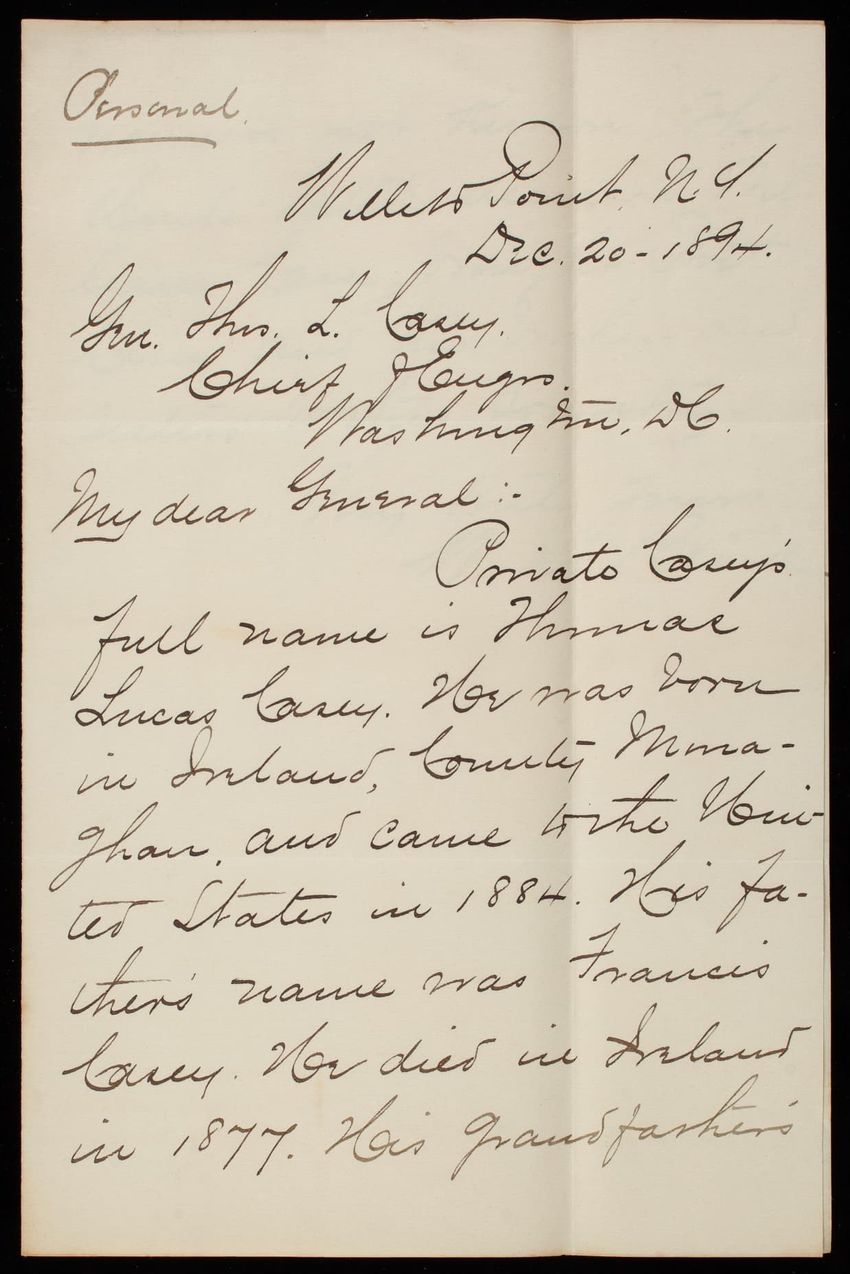 Personal.
Willets Point, N.Y.
Dec. 20 - 1894.
Gen. Thos. L. Casey.
Chief of Engrs.
Washington, DC.
My dear General :-
Private Casey's
full name is Thomas
Lucas Casey. He was born
in Ireland, County Mona-
ghan, and came to the Uni-
ted States in 1884. His fa-
ther's name was Francis
Casey. He died in Ireland
in 1877. His grandfather's